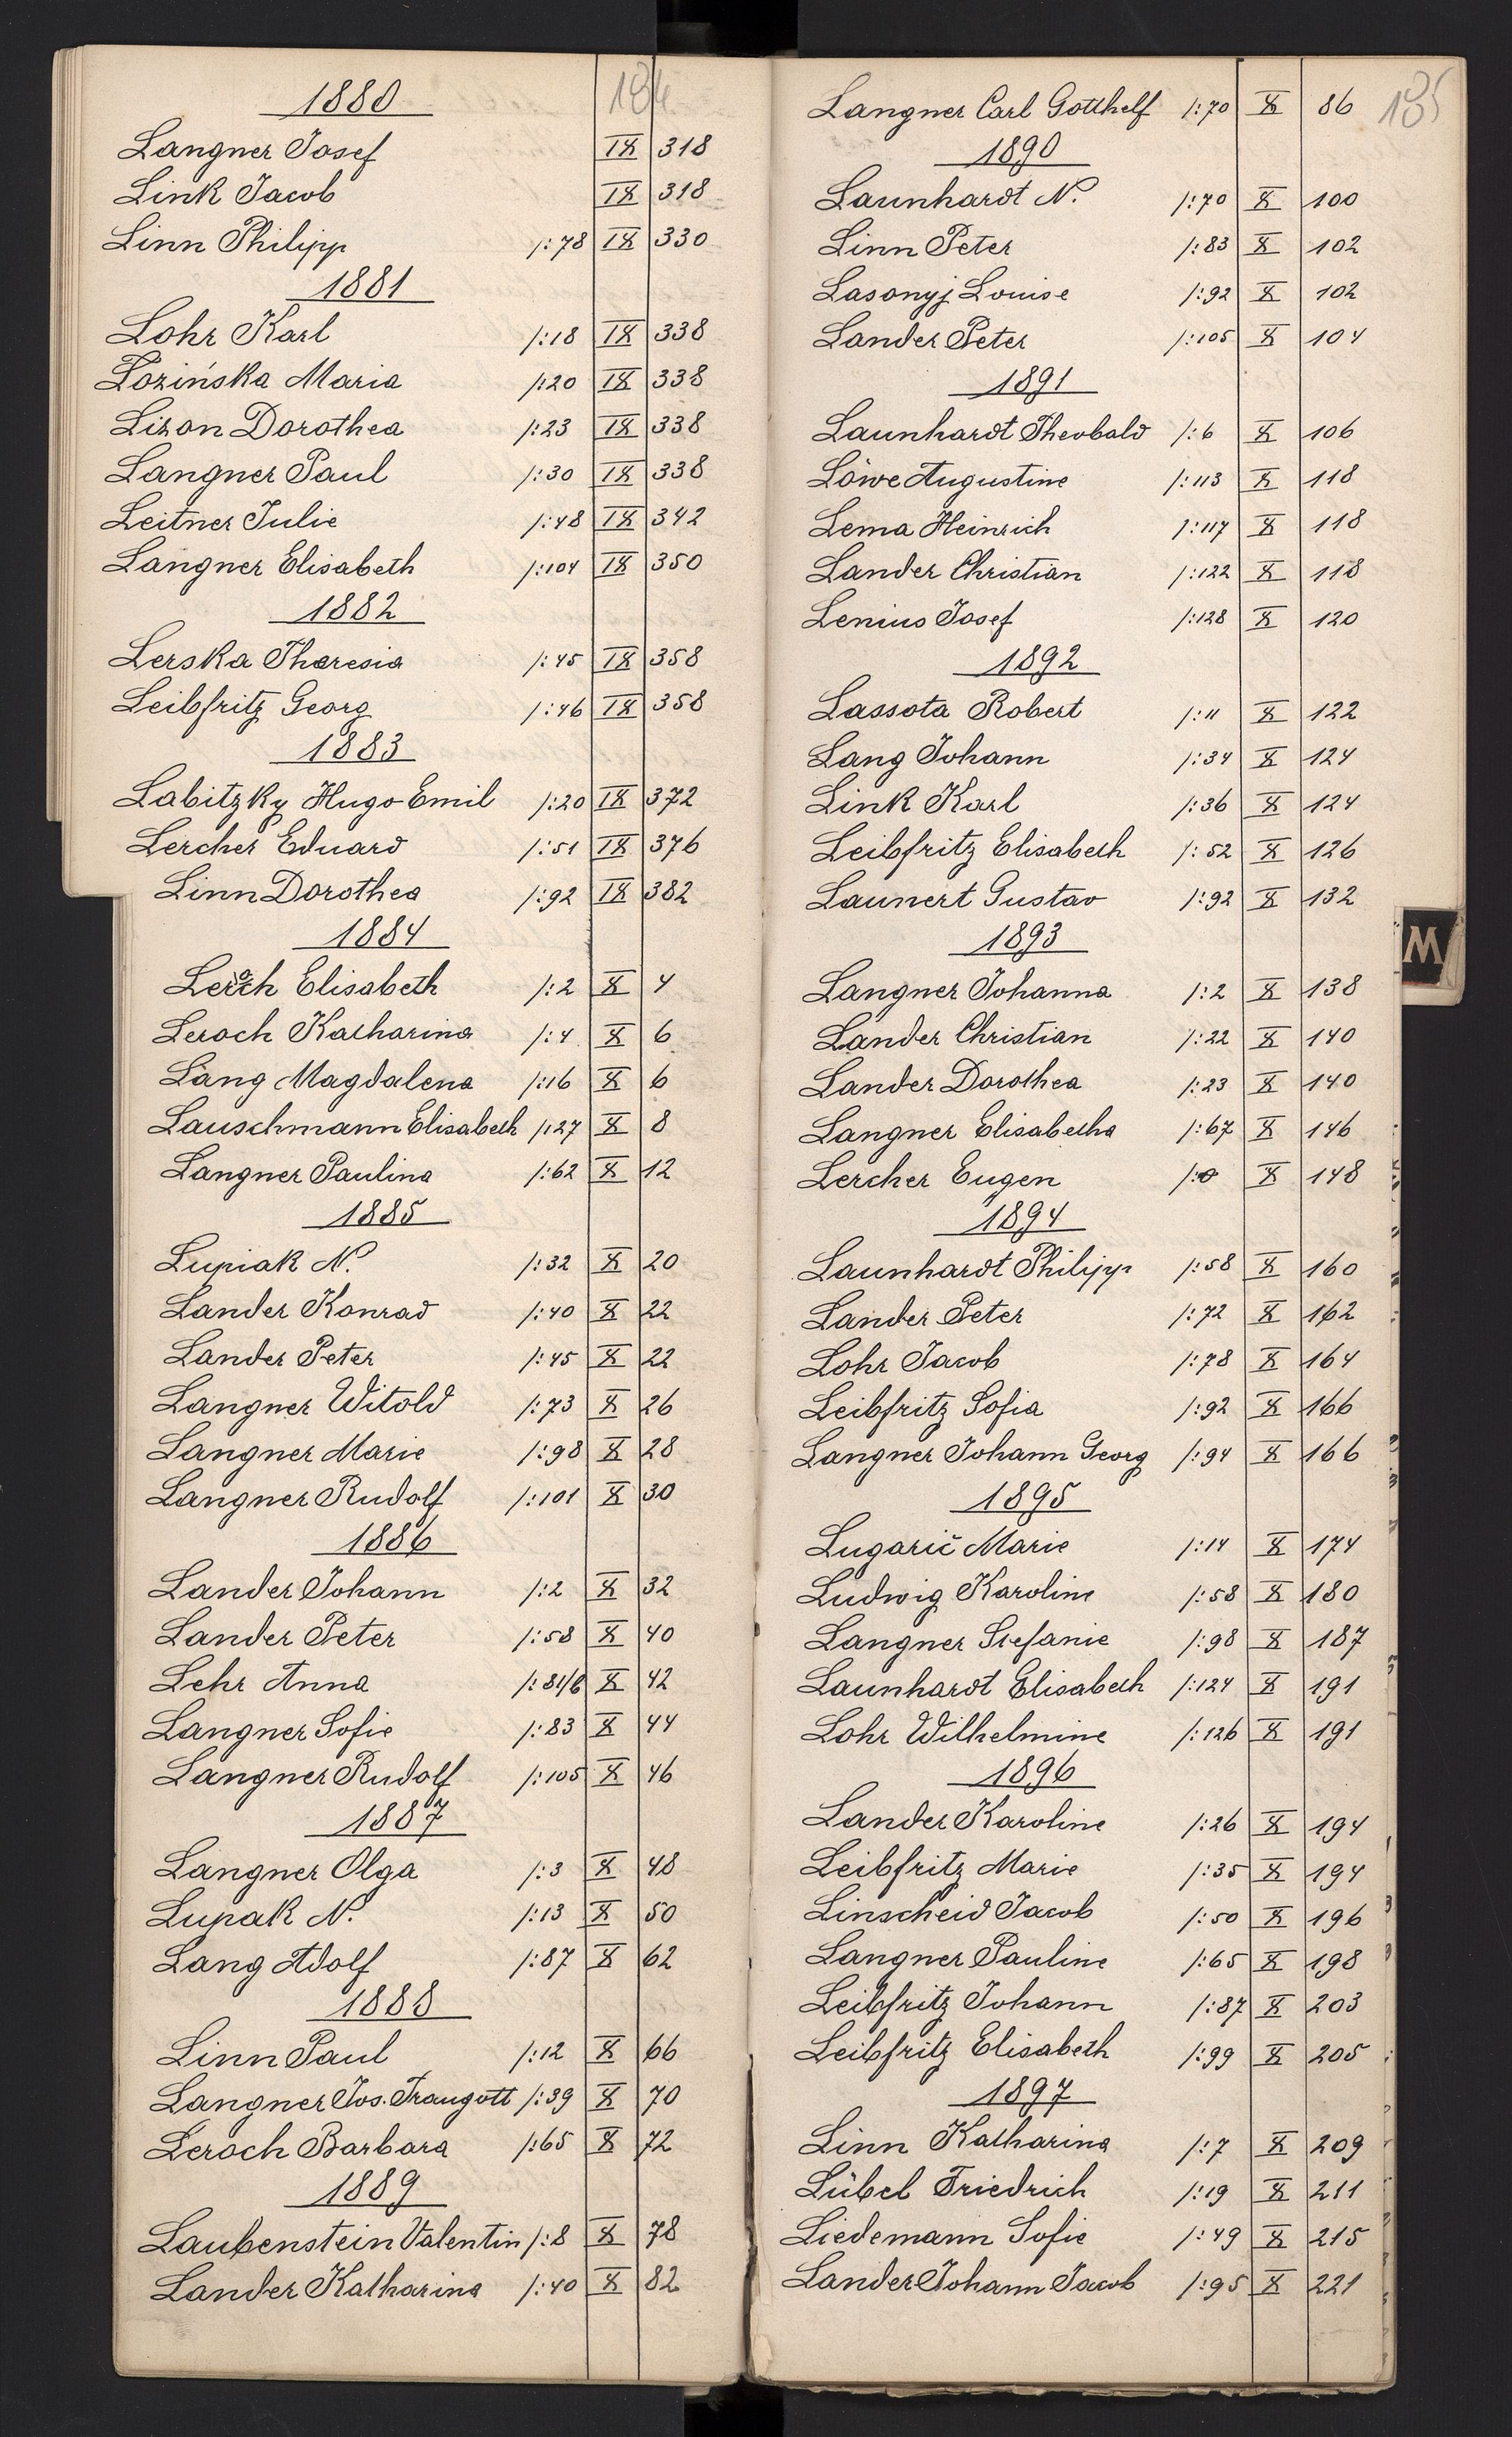 184
1880
Langner Josef IX 318
Link Jacob IX 318
Linn Philipp /:78 IX 330
1881
Lohr Karl /:18 IX 338
Łozińska Maria /:20 IX 338
Lizon Dorothea /:23 IX 338
Langner Paul /:30 IX 338
Leitner Julie /:48 IX 342
Langner Elisabeth /:104 IX 350
1882
Lerska Theresia /:45 IX 358
Leibfritz Georg /:46 IX 358
1883
Labitzky Hugo Emil /:20 IX 372
Lercher Eduard /:51 IX 376
Linn Dorothea /:92 IX 382
1884
Leroch Elisabeth /:2 X 4
Leroch Katharina /:4 X 6
Lang Magdalena /:16 X 6
Lauschmann Elisabeth /:27 X 8
Langner Paulina /:62 X 12
1885
Lupiak N. /:32 X 20
Lander Konrad /:40 X 22
Lander Peter /:45 X 22
Langner Witold /:73 X 26
Langner Marie /:98 X 28
Langner Rudolf /:101 X 30
1886
Lander Johann /:2 X 32
Lander Peter /:58 X 40
Lehr Anna /:81/b X 42
Langner Sofie /:83 X 44
Langner Rudolf /:105 X 46
1887
Langner Olga /:3 X 48
Lupak N. /:13 X 50
Lang Adolf /:87 X 62
1888
Linn Paul /:12 X 66
Langner Jos. Traugott /:39 X 70
Leroch Barbara /:65 X 72
1889
Laubenstein Valentin /:8 X 78
Lander Katharina /:40 X 82
185
Langner Carl Gotthelf /:70 X 86
1890
Launhardt N. /:70 X 100
Linn Peter /:83 X 102
Lasonyj Louise /:92 X 102
Lander Peter /:105 X 104
1891
Launhardt Theobald /:6 X 106
Löwe Augustine /:113 X 118
Lema Heinrich /:117 X 118
Lander Christian /:122 X 118
Lenius Josef /:128 X 120
1892
Lassota Robert /:11 X 122
Lang Johann /:34 X 124
Link Karl /:36 X 124
Leibfritz Elisabeth /:52 X 126
Launert Gustav /:92 X 132
1893
Langner Johanna /:2 X 138
Lander Christian /:22 X 140
Lander Dorothea /:23 X 140
Langner Elisabetha /:67 X 146
Lercher Eugen /:0 X 148
1894
Launhardt Philipp /:58 X 160
Lander Peter /:72 X 162
Lohr Jacob /:78 X 164
Leibfritz Sofia /:92 X 166
Langner Johann Georg /:94 X 166
1895
Lugarič Marie /:14 X 174
Ludwig Karoline /:58 X 180
Langner Stefanie /:98 X 187
Launhardt Elisabeth /:124 X 191
Lohr Wilhelmine /:126 X 191
1896
Lander Karoline /:26 X 194
Leibfritz Marie /:35 X 194
Linscheid Jacob /:50 X 196
Langner Pauline /:65 X 198
Leibfritz Johann /:87 X 203
Leibfritz Elisabeth /:99 X 205
1897
Linn Katharina /:7 X 209
Lübel Friedrich /:19 X 211
Liedemann Sofie /:49 X 215
Lander Johann Jacob /:95 X 221
M